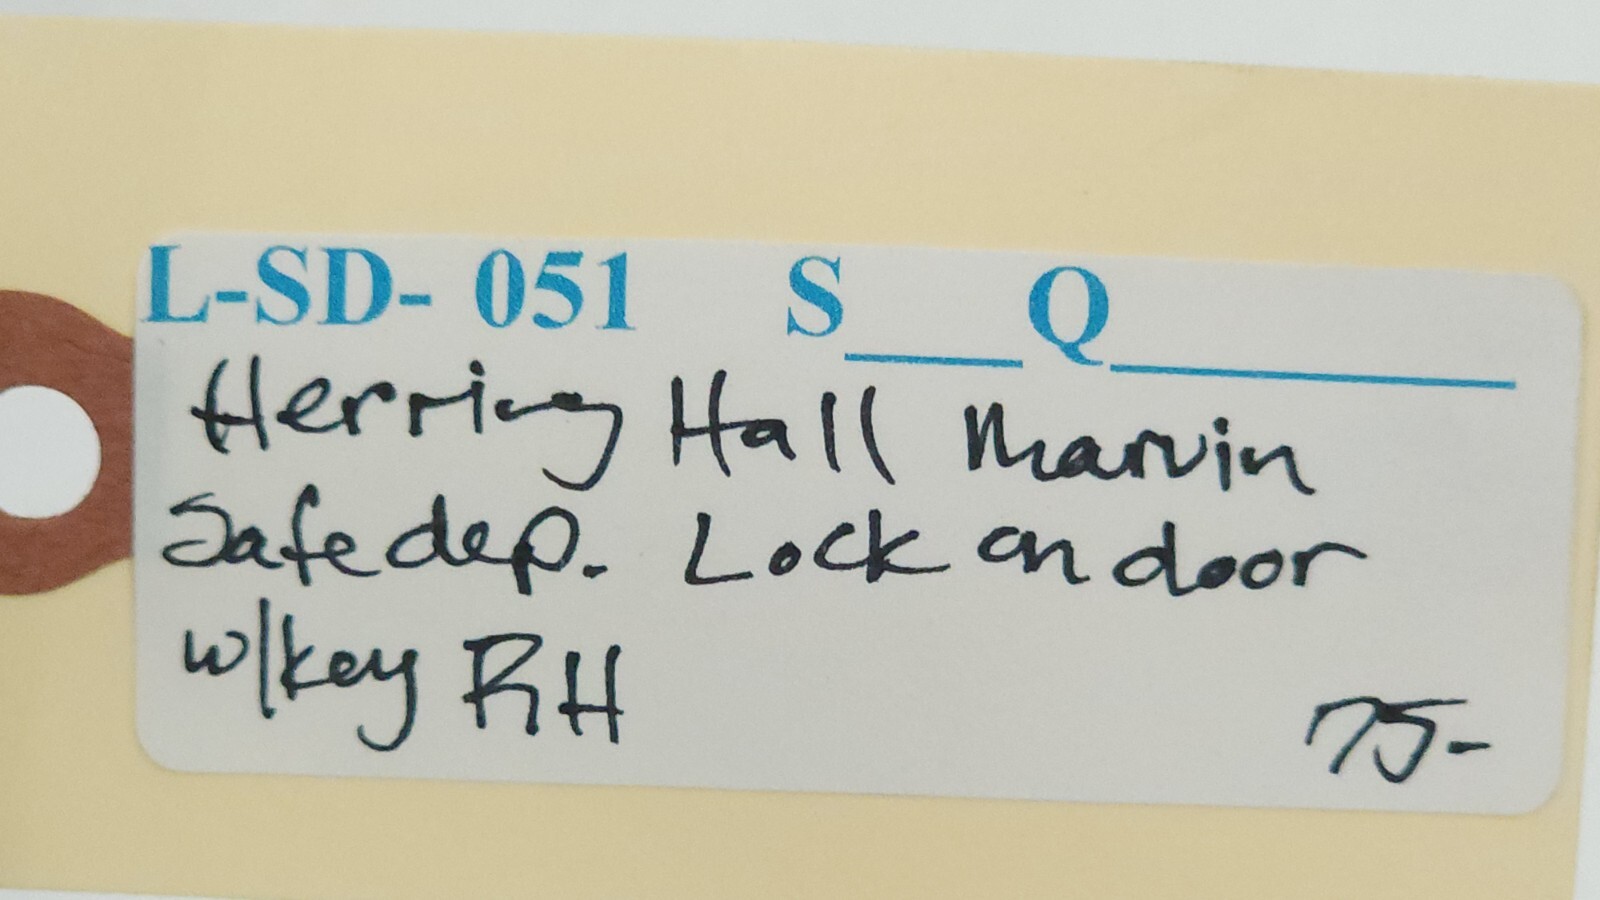 L-SD- 051 S___ Q_______
Herring Hall Marvin
Safe dep. Lock on door
w/key RH
75-